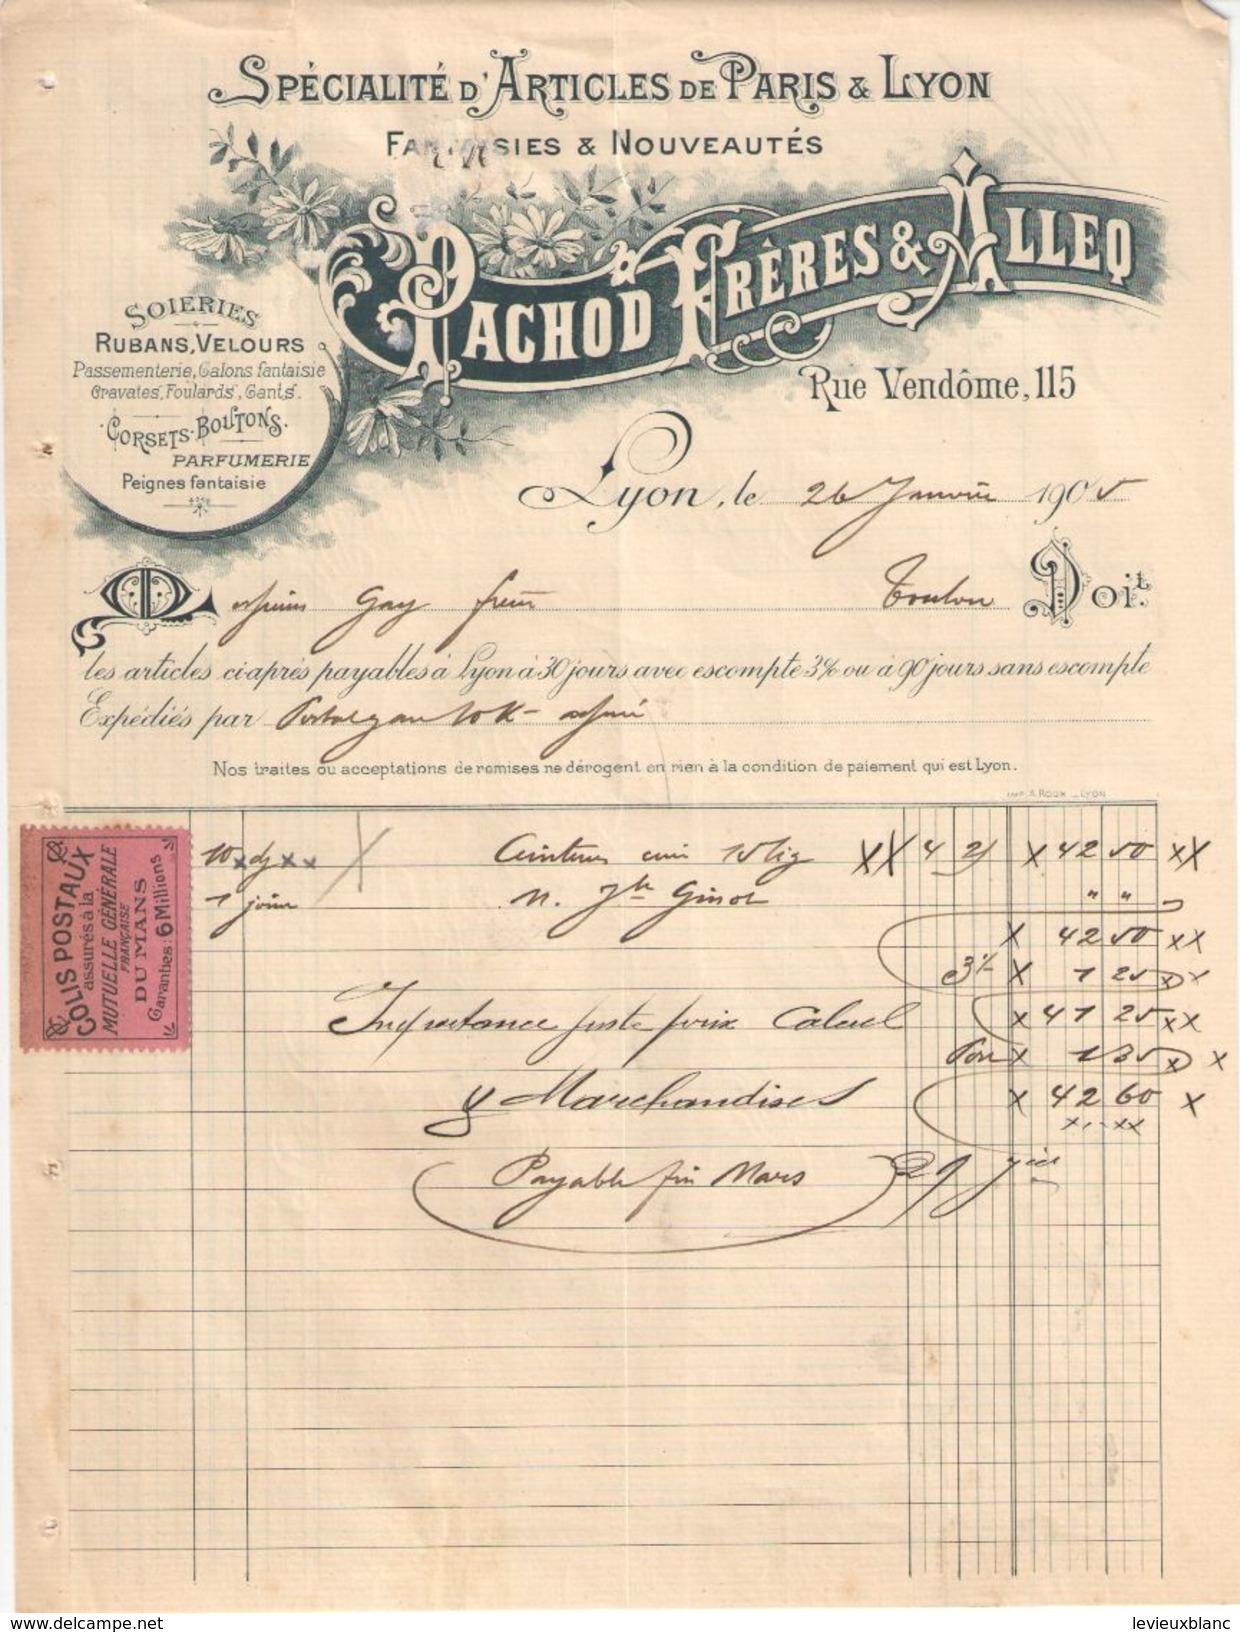 SPÉCIALITÉ D'ARTICLES DE PARIS & LYON
FANTAISIES & NOUVEAUTÉS
PACHOD FRÈRES & ALLEQ
SOIERIES
RUBANS, VELOURS
Passementerie, Galons fantaisie
Cravates, Foulards, Gants.
CORSETS - BOUTONS.
PARFUMERIE
Peignes fantaisie
Rue Vendôme, 115
Lyon, le 26 Janvier 1905
Messieurs Gay frères Toulon Doit
les articles ci-après payables à Lyon à 30 jours avec escompte 3% ou à 90 jours sans escompte
Expédiés par
Nos traites ou acceptations de remises ne dérogent en rien à la condition de paiement qui est Lyon.
IMP. A. ROUX _ LYON
COLIS POSTAUX
assurés à la
MUTUELLE GÉNÉRALE
FRANÇAISE
DU MANS
Garanties: 6 Millions
10 Ceintures cuir 4 25 42 50
1 " "
42 50
3% 1 25
juste prix Calcul 41 25
Port 1 35
Marchandises 42 60
Payable fin Mars
levieuxblanc